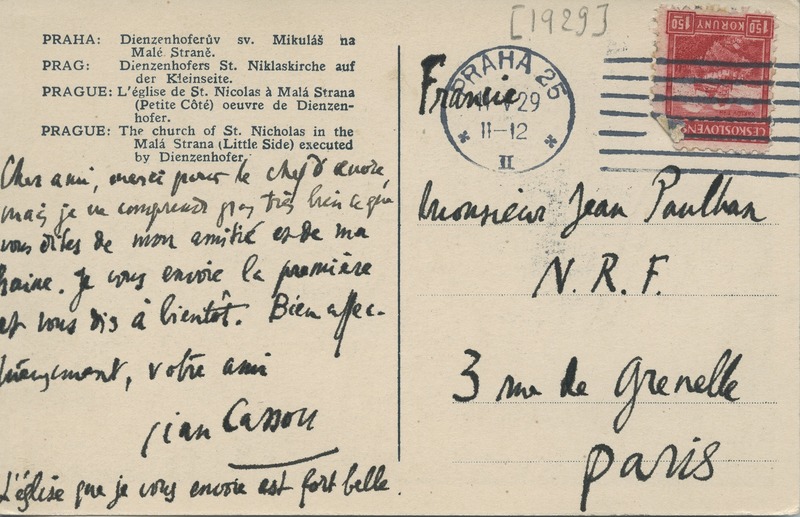 [1929]
PRAHA: Dienzenhoferův sv. Mikuláš na
Malé Straně.
PRAG: Dienzenhofers St. Niklaskirche auf
der Kleinseite.
PRAGUE: L'église de St. Nicolas à Malá Strana
(Petite Côté) oeuvre de Dienzen-
hofer.
PRAGUE: The church of St. Nicholas in the
Malá Strana (Little Side) executed
by Dienzenhofer.
Cher ami, merci pour le chef d'œuvre,
mais je ne comprends pas très bien ce que
vous dites de mon amitié et de ma
haine. Je vous envoie la première
et vous dis à bientôt. Bien affec-
tueusement, votre ami
Jean Cassou
L'église que je vous envoie est fort belle.
PRAHA 25
29
11-12
II
1·50 KORUNY 1·50
ČESKOSLOVENS
Francie
Monsieur Jean Paulhan
N. R. F.
3 rue de Grenelle
Paris